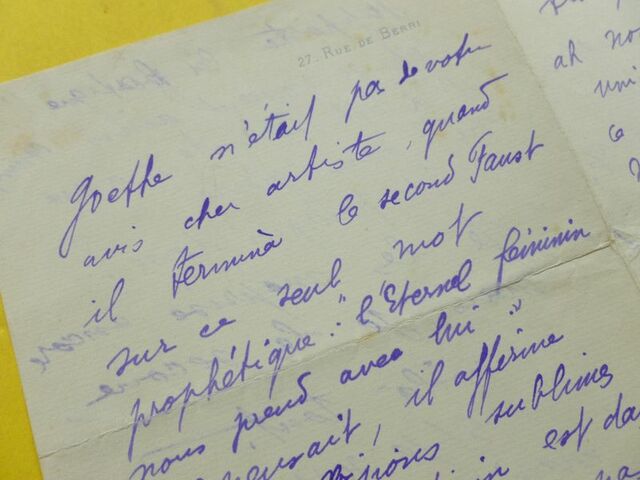 27, Rue de Berri
Goethe n'était pas de votre
avis cher artiste, quand
il termina le second Faust
sur ce seul mot
prophétique: "l'Eternel féminin
nous prend avec lui"
il affirme
sublimes
est da
ah no
uni